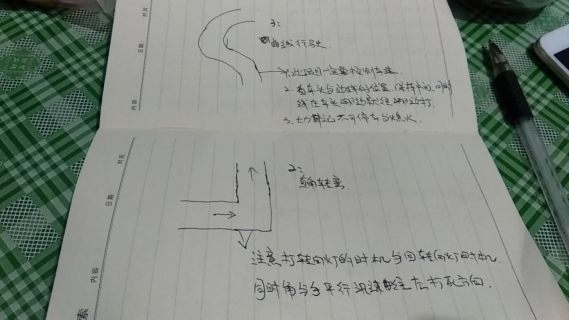 3:
曲线行驶
1. 此项目一定要控制车速
2. 看车头与边线的位置,保持中间,同时
线在车头的
3. 切记不可停车与熄火
2:
直角转弯
注意打转向灯的时机与回转向灯时机
同时角与手平行迅速向左打死方向.
时间
日期
内容
时间
日期
内容
索